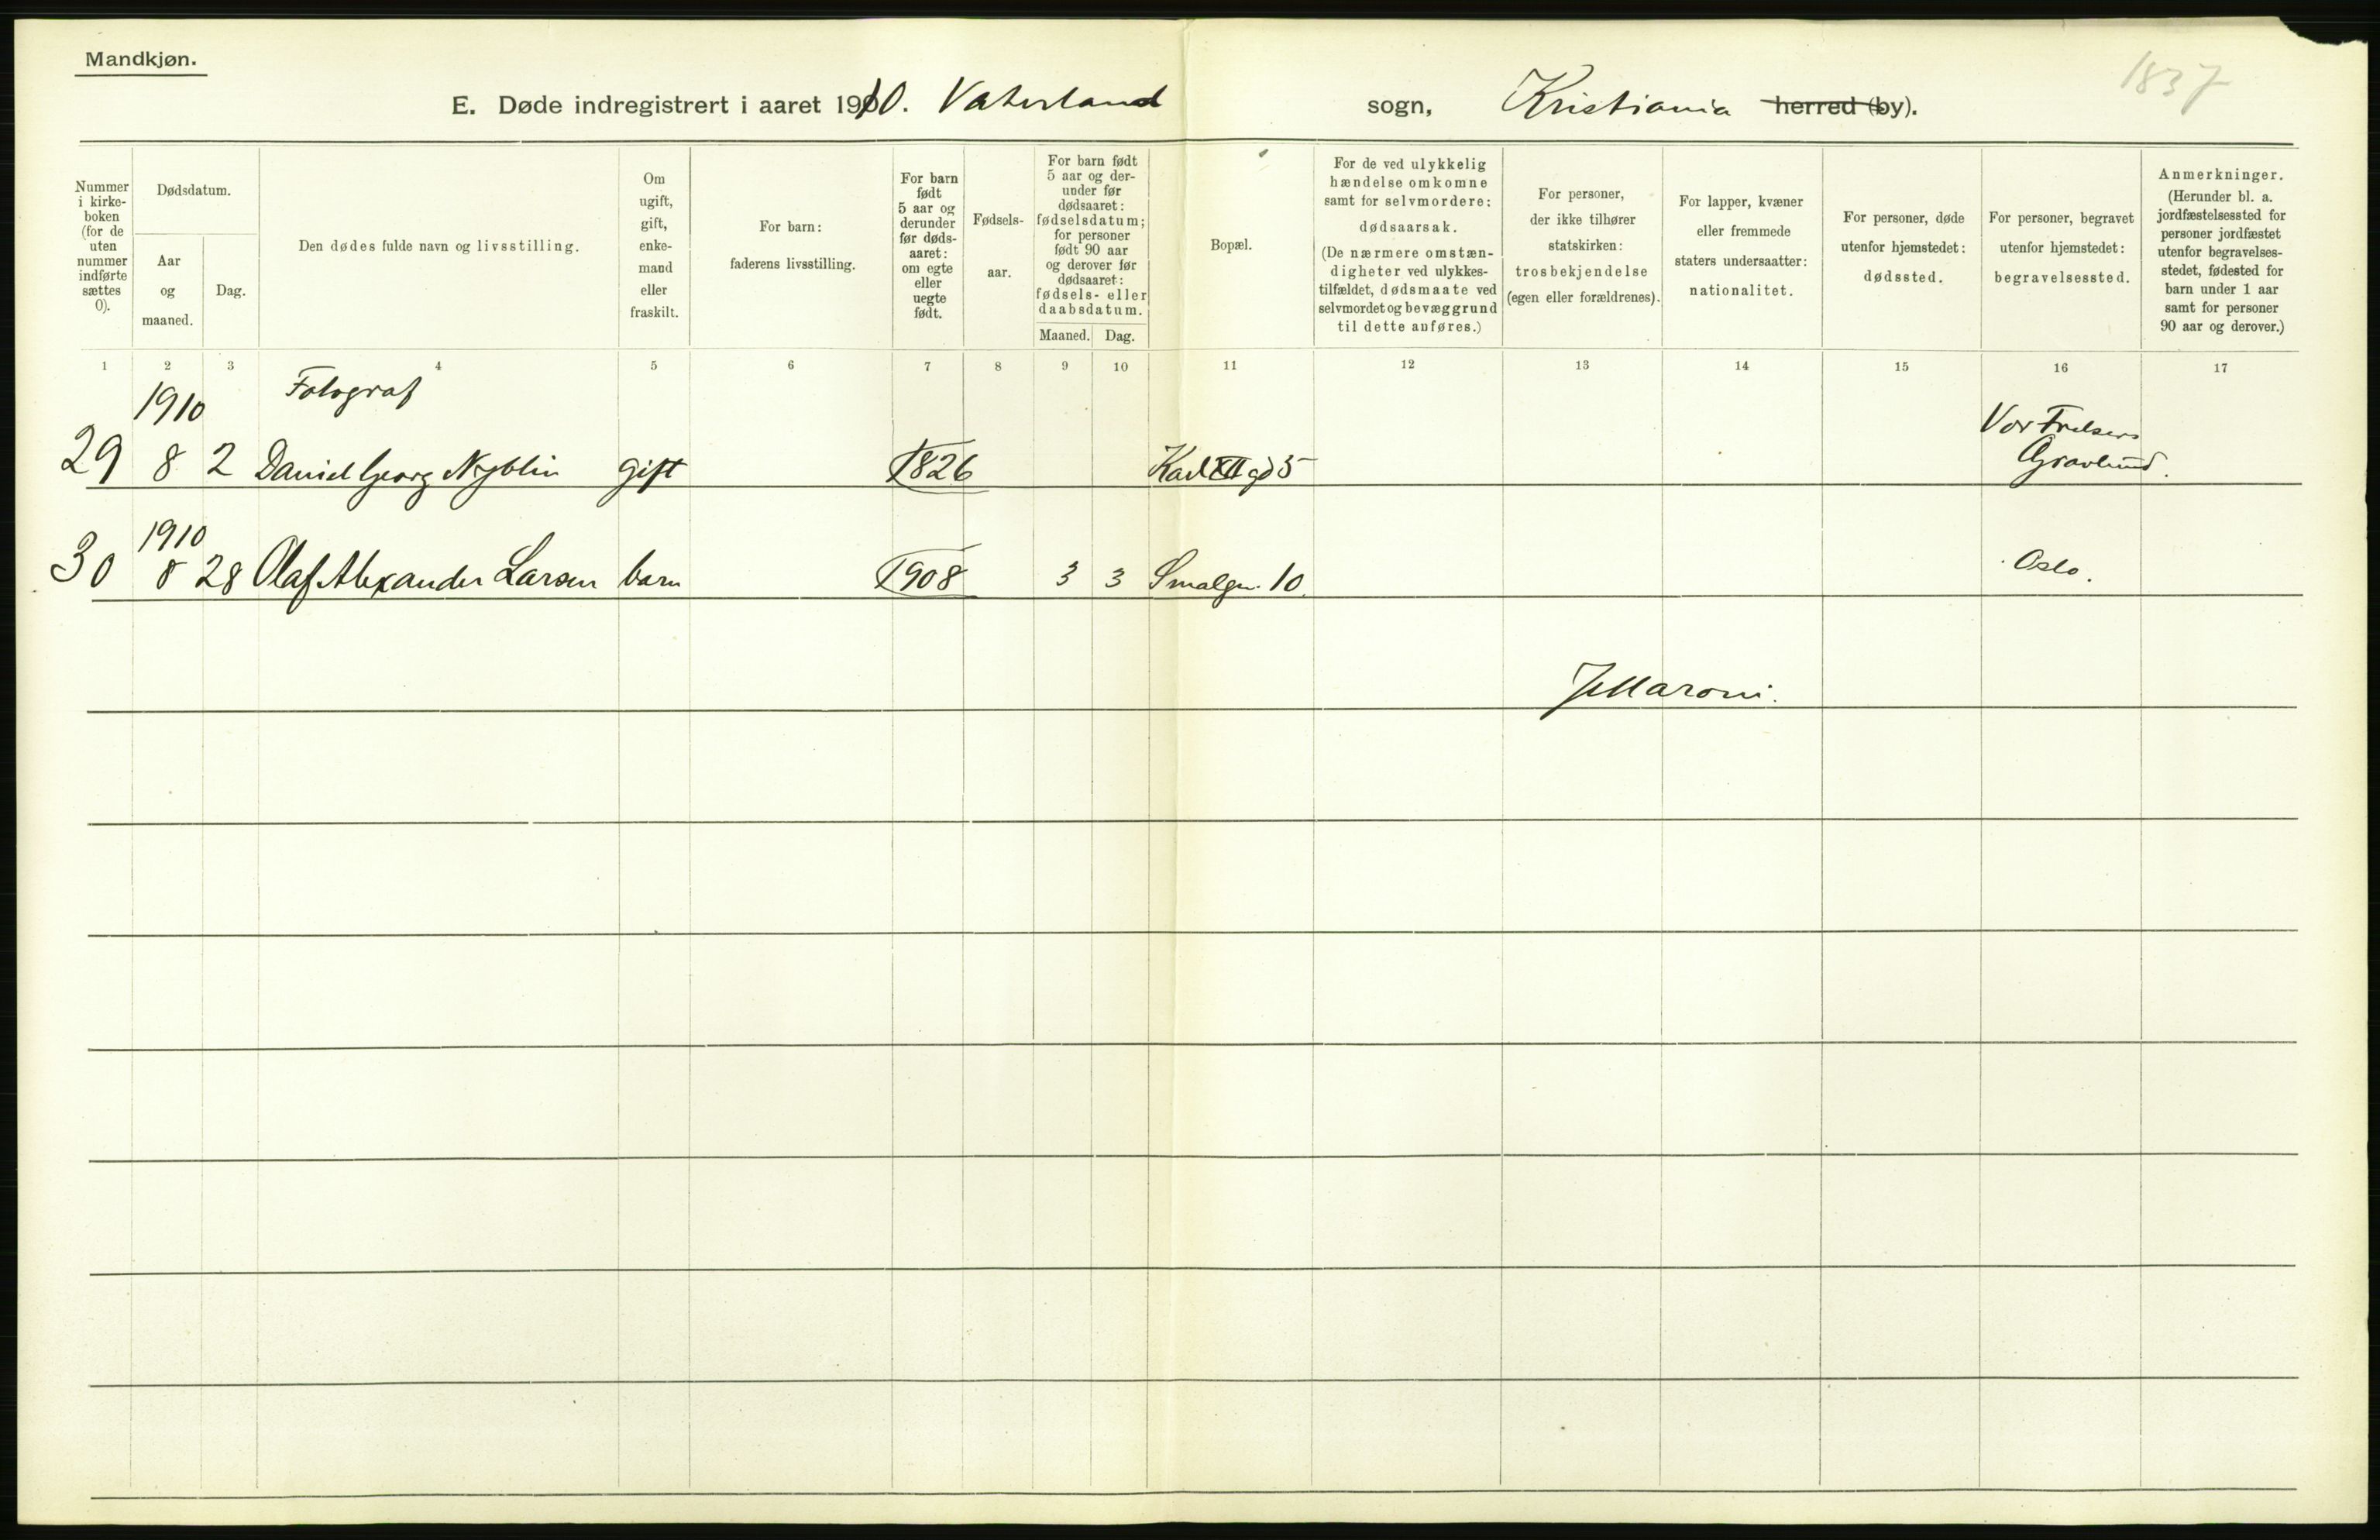 Mandkjøn.
1837
E. Døde indregistrert i aaret 1910. Vaterland sogn, Kristiania herred (by).
Nummer
i kirke-
boken
(for de
uten
nummer
indførte
sættes
0).
Dødsdatum.
Aar
og
maaned.
Dag.
Den dødes fulde navn og livsstilling.
Om
ugift,
gift,
enke-
mand
eller
fraskilt.
For barn:
faderens livsstilling.
For barn
født
5 aar og
derunder
før døds-
aaret:
om egte
eller
uegte
født.
Fødsels-
aar.
For barn født
5 aar og der-
under før
dødsaaret:
fødselsdatum;
for personer
født 90 aar
og derover før
dødsaaret:
fødsels- eller
daabsdatum.
Maaned. Dag.
Bopæl.
For de ved ulykkelig
hændelse omkomne
samt for selvmordere:
dødsaarsak.
(De nærmere omstæn-
digheter ved ulykkes-
tilfældet, dødsmaate ved
selvmordet og bevæggrund
til dette anføres.)
For personer,
der ikke tilhører
statskirken:
trosbekjendelse
(egen eller forældrenes).
For lapper, kvæner
eller fremmede
staters undersaatter:
nationalitet.
For personer, døde
utenfor hjemstedet:
dødssted.
For personer, begravet
utenfor hjemstedet:
begravelsessted.
Anmerkninger.
(Herunder bl. a.
jordfæstelsessted for
personer jordfæstet
utenfor begravelses-
stedet, fødested for
barn under 1 aar
samt for personer
90 aar og derover.)
1 2 3 4 5 6 7 8 9 10 11 12 13 14 15 16 17
1910 Fotograf Vor Frelsers
29 8 2 Daniel Georg Nyblin gift 1826 Karl XII gd 5 Gravlund.
1910
30 8 28 Olaf Alexander Larsen barn 1908 3 3 Smalgn. 10. Oslo.
JMaroni.